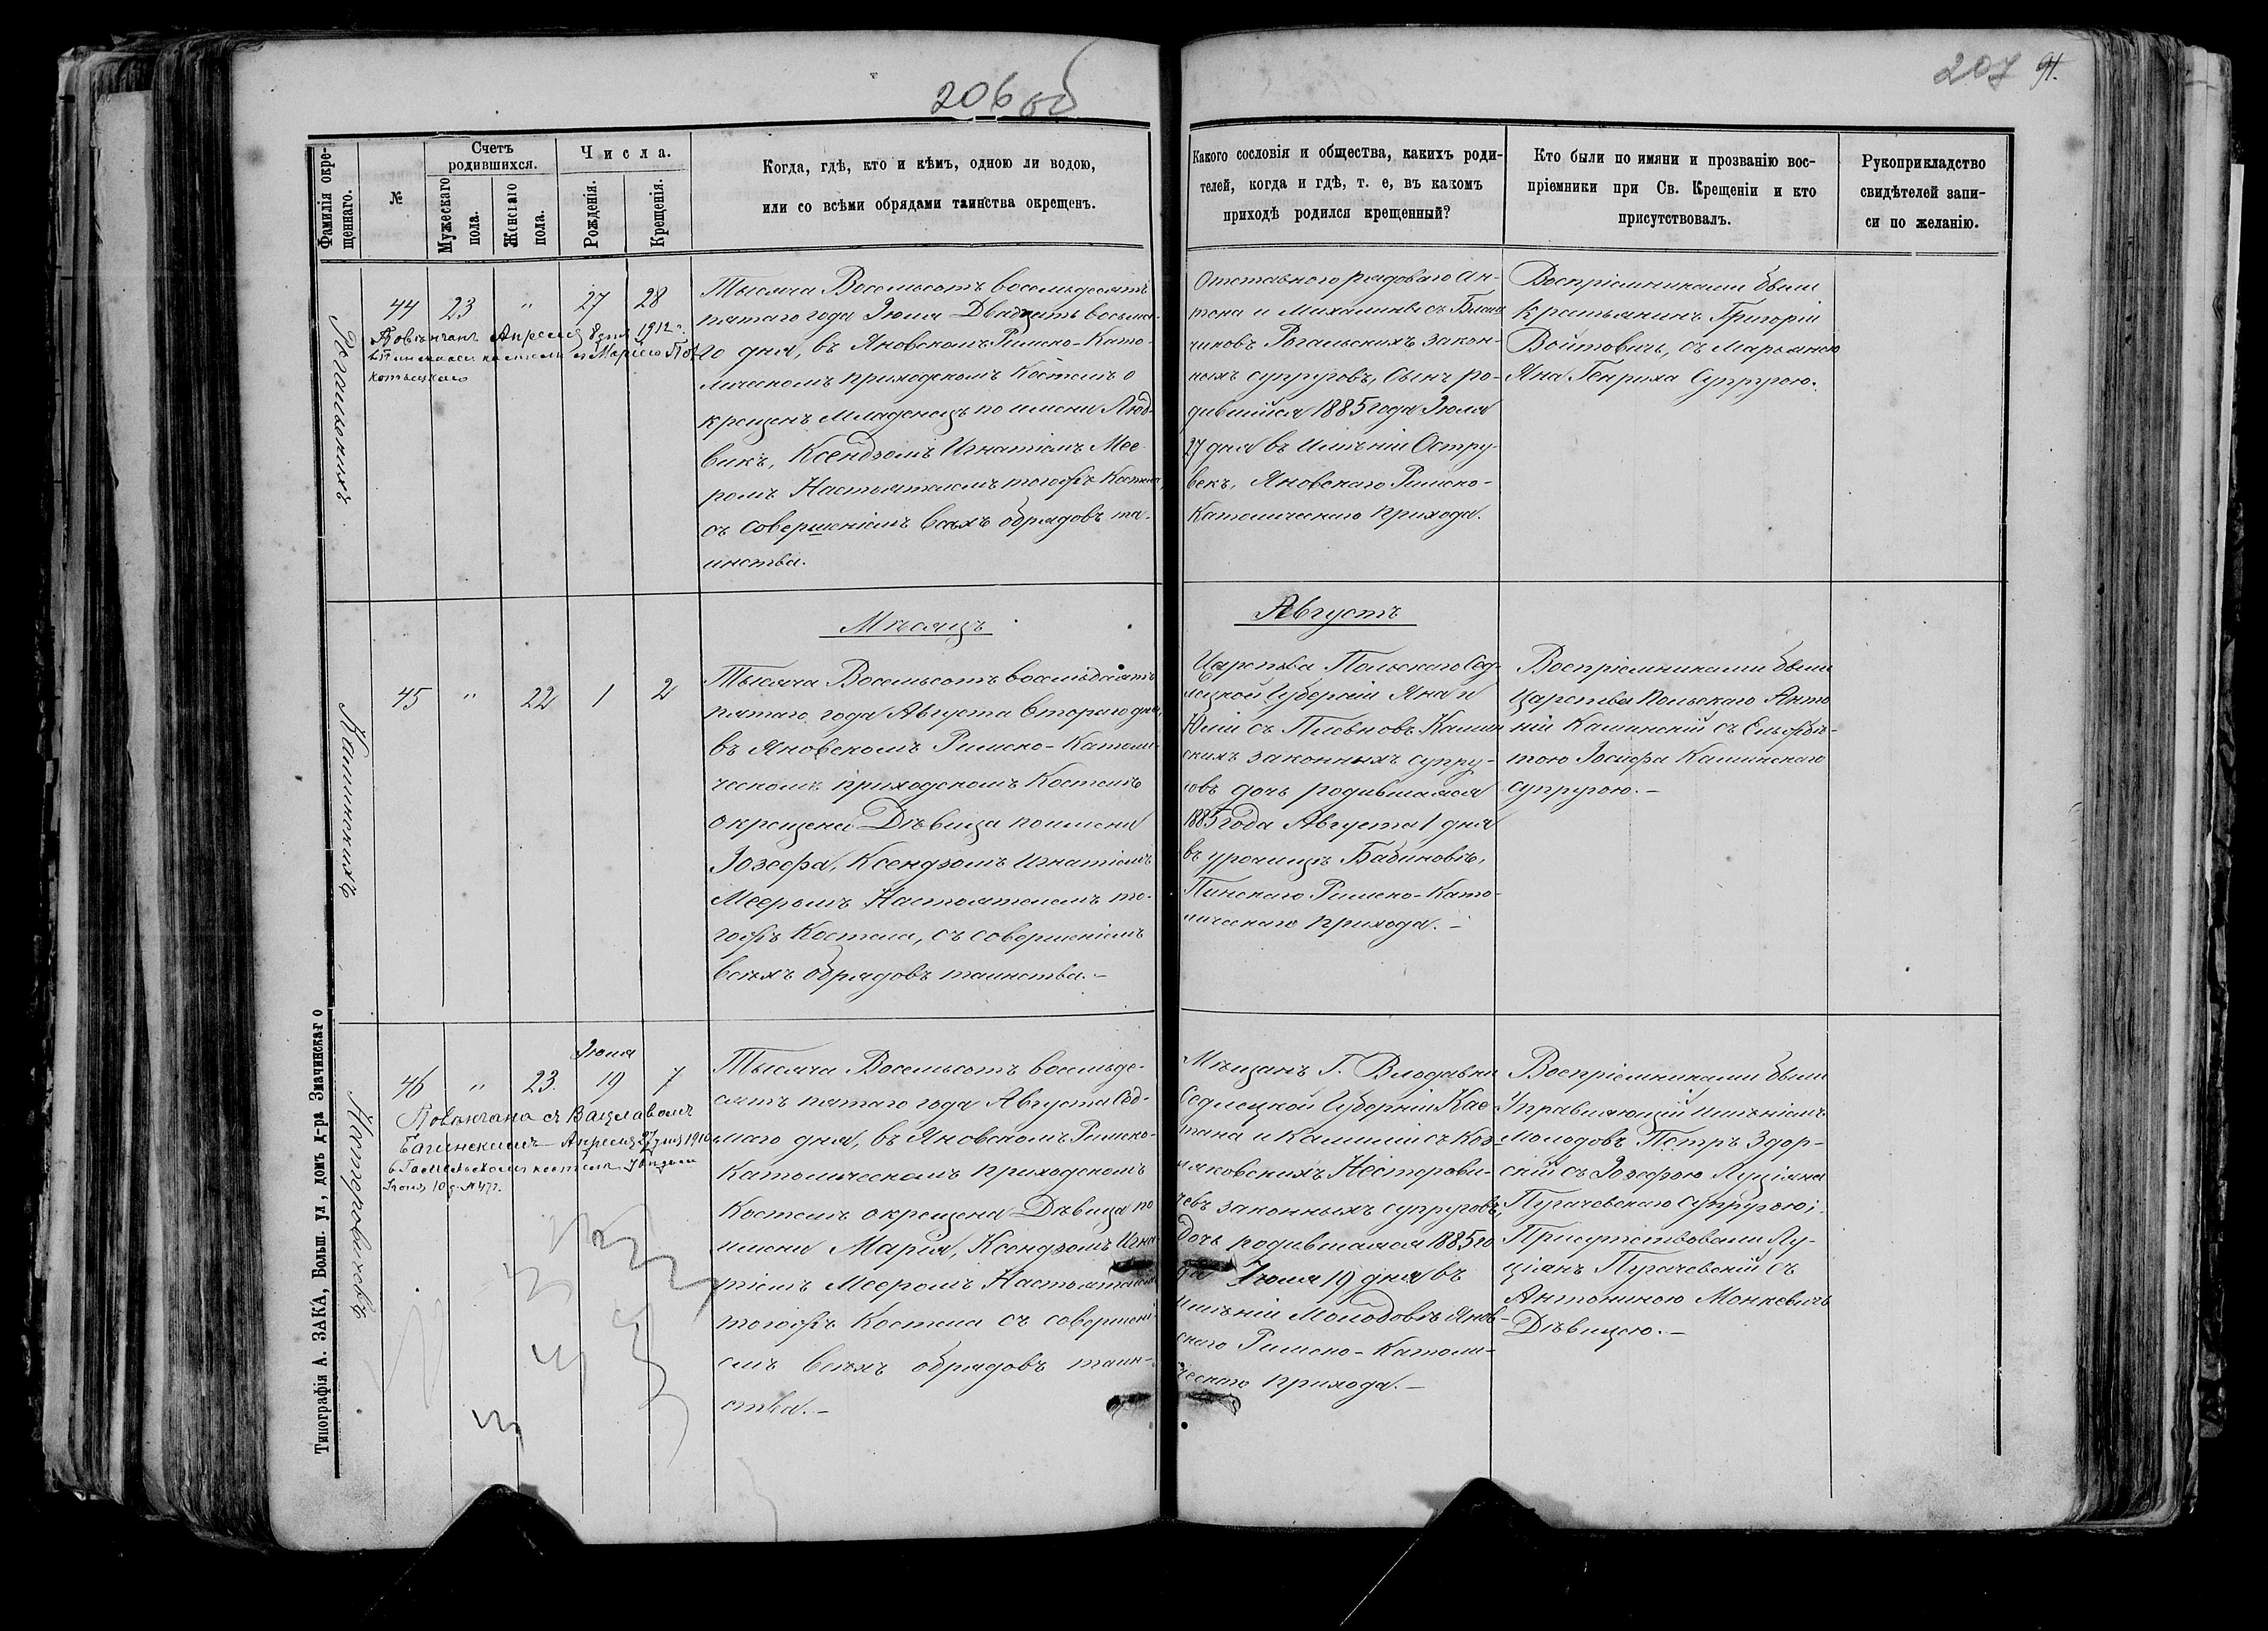 206 об
207 91.
Фамилія окре-
щеннаго.
№
Счетъ
родившихся.
Мужескаго
пола.
Женскаго
пола.
Числа.
Рожденія.
Крещенія.
Когда, гдѣ, кто и кѣмъ, одною ли водою,
или со всѣми обрядами таинства окрещенъ.
Какого сословія и общества, какихъ роди-
телей, когда и гдѣ, т. е, въ какомъ
приходѣ родился крещенный?
Кто были по имяни и прозванію вос-
пріемники при Св. Крещеніи и кто
присутствовалъ.
Рукоприкладство
свидѣтелей запи-
си по желанію.
Рогальскихъ
44 23 " 27 28
Повѣнчанъ Апреля 8 дня 1912 г.
въ Пинскомъ костелѣ съ Маріею
Тысяча Восемьсотъ восемьдесятъ
пятаго года Іюля Двадцать восьма-
го дня, въ Яновскомъ Римско-Като-
лическомъ приходскомъ Костелѣ о
крещенъ Младенецъ по имени Люд-
викъ, Ксендзомъ Игнатіемъ Мее-
ромъ Настоятелемъ тогожъ Костела,
съ совершеніемъ всѣхъ обрядовъ та-
инства.
Отставного рядоваго Ан-
тона и Михалины съ
Рогальскихъ закон-
ныхъ супруговъ, Сынъ ро-
дившійся 1885 года Іюля
27 дня въ Имѣніи Остру-
векъ, Яновскаго Римско-
Католическаго прихода.
Воспріемниками были
Крестьянинъ Григорій
Войтовичъ, съ Марьяною
Яна Генриха Супругою.
Мѣсяцъ
Августъ
Калинскихъ
45 " 22 1 2
Тысяча Восемьсотъ восемьдесятъ
пятаго года Августа Втораго дня,
въ Яновскомъ Римско-Католи-
ческомъ приходскомъ Костелѣ
окрещена Дѣвица по имени
Іозефа, Ксендзомъ Игнатіемъ
Мееромъ Настоятелемъ то-
гожъ Костела, съ совершеніемъ
всѣхъ обрядовъ таинства.-
Царства Польскаго Сед-
лецкой Губерніи Яна и
Юліи съ Калин
скихъ законныхъ супру-
говъ дочь родившаяся
1885 года Августа 1 дня
въ урочищѣ Бабиновѣ,
Пинскаго Римско-Като-
лическаго прихода.-
Воспріемниками были
Царства Польскаго Анто
ній Калинскій съ Ельжбѣ-
тою Іосифа Калинскаго
супругою.-
Нестеровичовъ
Іюля
46 " 23. 19 7
Повѣнчана съ Вацлавомъ
Багинскимъ Апреля 27 дня 1910
въ Гомельскомъ костелѣ
Тысяча Восемьсотъ восемьде-
сятъ пятаго года Августа Сед-
маго дня, въ Яновскомъ Римско-
Католическомъ приходскомъ
Костелѣ окрещена Дѣвица по
имени Марія, Ксендзомъ Игна
тіемъ Мееромъ Настоятелемъ
тогожъ Костела съ совершені-
емъ всѣхъ обрядовъ таин-
ства.-
Мѣщанъ Г. Влодавы
Седлецкой Губерніи Кае-
тана и Камиліи съ Коз-
ляковскихъ Нестерови-
чевъ законныхъ супруговъ,
дочь родившаяся 1885 го
да Іюля 19 дня въ
имѣніи Молодовѣ Янов-
скаго Римско-Католи-
ческаго прихода.-
Воспріемниками были
Управляющій имѣніемъ
Молодовъ Петръ Здор-
скій съ Іозефою Луціяна
Пугачевскаго супругою;
Присутствовали Лу-
ціянъ Пугачевскій съ
Антониною Монкевичъ
Дѣвицею.-
Типографія А. ЗАКА, Больш. ул., домъ д-ра Змачинскаго